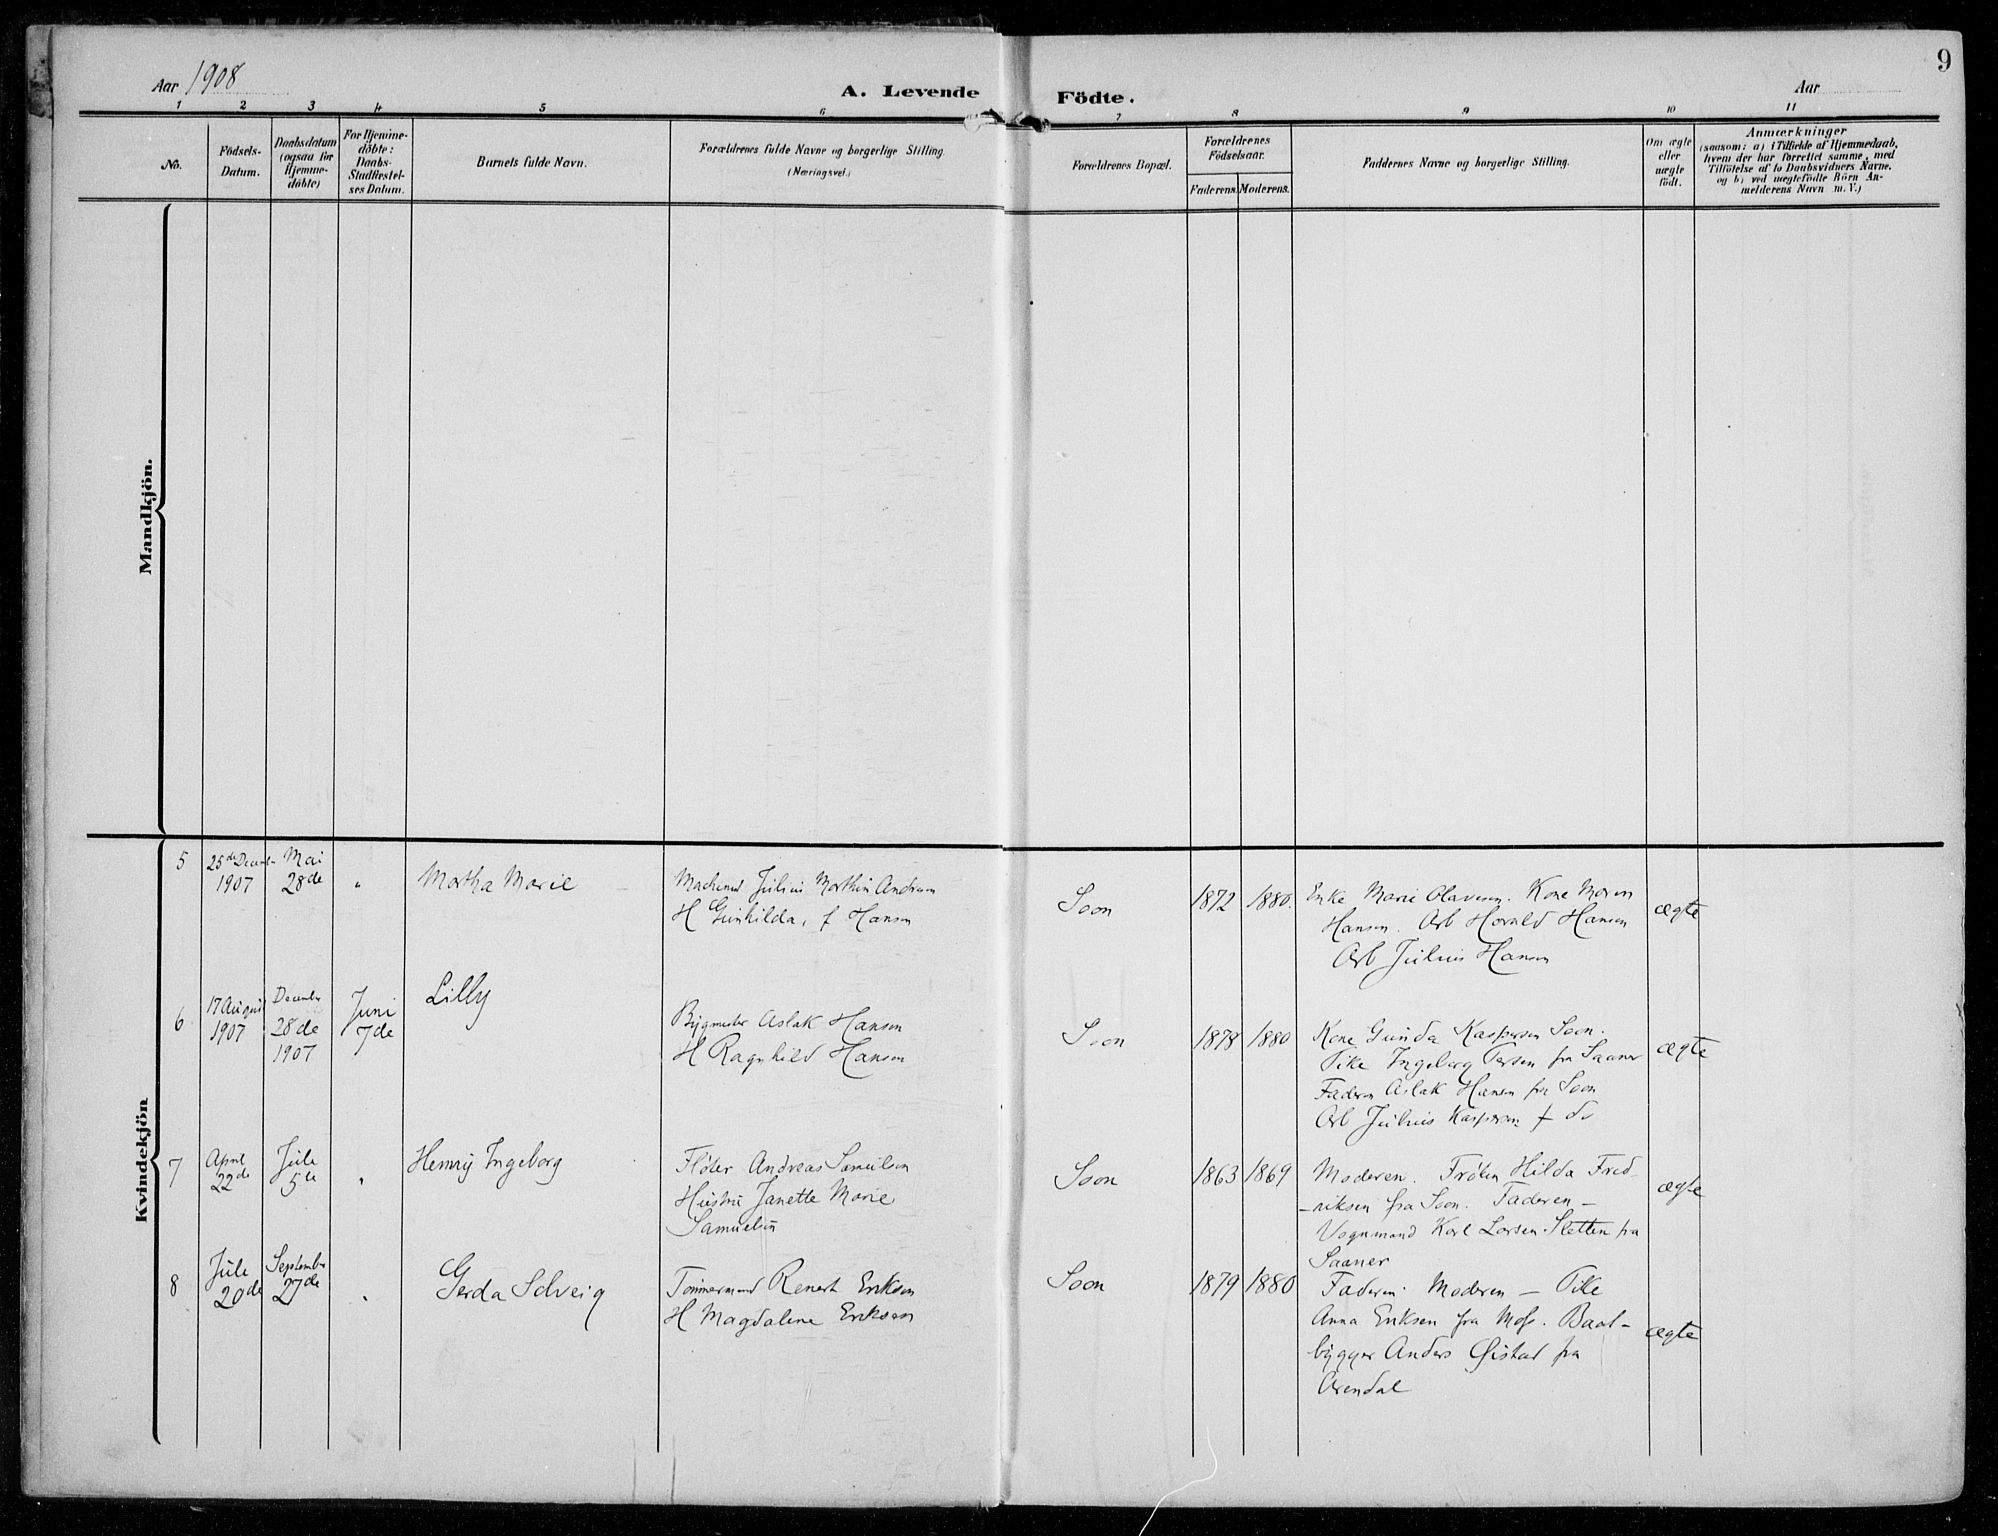 9
Aar 1908
A. Levende Födte.
Aar
1 2 3 4 5 6 7 8 9 10 11
No.
Födsels-
Datum.
Daabsdatum
(ogsaa for
Hjemme-
döbte)
For Hjemme-
döbte:
Daabs-
Stadfæstel-
ses Datum.
Barnets fulde Navn.
Forældrenes fulde Navne og borgerlige Stilling
(Næringsvei.)
Forældrenes Bopæl.
Forældrenes
Födselsaar.
Faderens. Moderens.
Faddernes Navne og borgerlige Stilling.
Om ægte
eller
uægte
födt.
Anmærkninger
(saasom: a) i Tilfælde af Hjemmedaab,
hvem der har forrettet samme, med
Tilföielse af to Daabsvidners Navne.
og b) ved uægtefödte Börn An-
melderens Navn m. V.)
Mandkjön.
Kvindekjön
5
25de Decemb
1907
Mai
28de
"
Martha Marie
Julius Marthin
H Gunhilda, f Hansen
Soon
1872
1880.
Enke Marie Olavesen. Kone Maren
Hansen. Arb Harald Hansen
Arb Julius Hansen
ægte
6
17 August
1907
December
28de
1907
Juni
7de
Lilly
Bygmester Aslak Hansen
H Ragnhild Hansen
Soon
1878
1880
Kone Gunda Kaspersen Soon.
Pike Ingeborg fra Saaner
Faderen Aslak Hansen fra Soon
Arb Julius Kaspersen f do
ægte
7
April
22de
Jule
5te
"
Henny Ingeborg
Fløter Andreas Samuelsen
Hustru Janette Marie
Samuelsen
Soon
1863
1869
Moderen. Frøken Hilda Fred-
-riksen fra Soon. Faderen –
Vognmand Karl Larsen Sletten fra
Saaner
ægte
8
Jule
20de
September
27de
"
Gerda Solveig
Tømmermand Renert Eriksen
H Magdalene Eriksen
Soon
1879
1880
Faderen. Moderen – Pike
Anna Eriksen fra Moss. Baat-
bygger Anders Øistad fra
Arendal
ægte